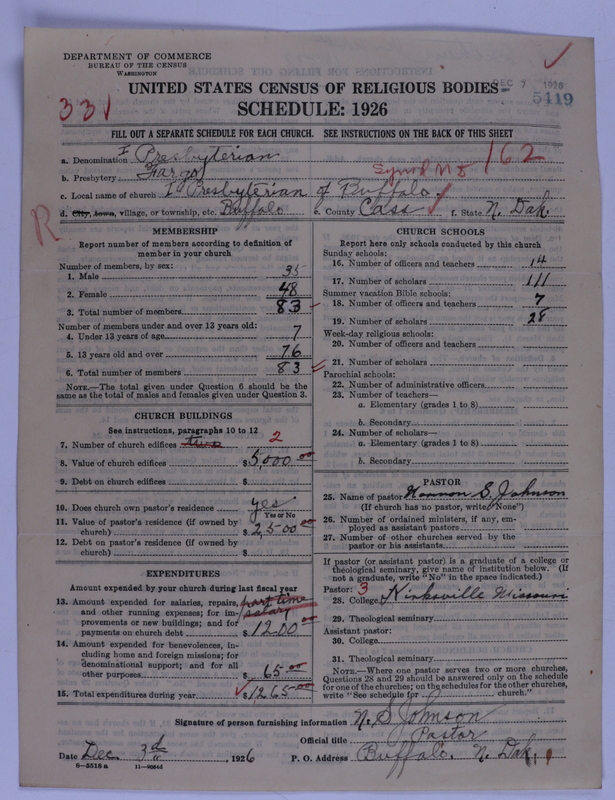 DEPARTMENT OF COMMERCE
BUREAU OF THE CENSUS
WASHINGTON
UNITED STATES CENSUS OF RELIGIOUS BODIES
DEC 7 1926
5419
331
SCHEDULE: 1926
FILL OUT A SEPARATE SCHEDULE FOR EACH CHURCH. SEE INSTRUCTIONS ON THE BACK OF THIS SHEET
a. Denomination I Presbyterian
b. Presbytery Fargo
162
c. Local name of church I Presbyterian of Buffalo.
R
d. City, town, village, or township, etc. Buffalo e. County Cass f. State N. Dak.
MEMBERSHIP
Report number of members according to definition of member in your church
Number of members, by sex:
1. Male 35
2. Female 48
3. Total number of members 83
Number of members under and over 13 years old:
4. Under 13 years of age 7
5. 13 years old and over 76
6. Total number of members 83
NOTE.—The total given under Question 6 should be the same as the total of males and females given under Question 3.
CHURCH BUILDINGS
See instructions, paragraphs 10 to 12
7. Number of church edifices 2
8. Value of church edifices $5000.00
9. Debt on church edifices $
10. Does church own pastor's residence yes
Yes or No
11. Value of pastor's residence (if owned by church) $2,500.00
12. Debt on pastor's residence (if owned by church) $
EXPENDITURES
Amount expended by your church during last fiscal year
13. Amount expended for salaries, repairs, and other running expenses; for improvements or new buildings; and for payments on church debt part time salary $1200.00
14. Amount expended for benevolences, including home and foreign missions; for denominational support; and for all other purposes $65.00
15. Total expenditures during year $1265.00
CHURCH SCHOOLS
Report here only schools conducted by this church
Sunday schools:
16. Number of officers and teachers 14
17. Number of scholars 111
Summer vacation Bible schools:
18. Number of officers and teachers 7
19. Number of scholars 28
Week-day religious schools:
20. Number of officers and teachers
21. Number of scholars
Parochial schools:
22. Number of administrative officers
23. Number of teachers—
a. Elementary (grades 1 to 8)
b. Secondary
24. Number of scholars—
a. Elementary (grades 1 to 8)
b. Secondary
PASTOR
25. Name of pastor S. Johnson
(If church has no pastor, write "None")
26. Number of ordained ministers, if any, employed as assistant pastors
27. Number of other churches served by the pastor or his assistants
If pastor (or assistant pastor) is a graduate of a college or theological seminary, give name of institution below. (If not a graduate, write "No" in the space indicated.)
Pastor: 3
28. College Kirksville Missouri
29. Theological seminary
Assistant pastor:
30. College
31. Theological seminary
NOTE.—Where one pastor serves two or more churches, Questions 28 and 29 should be answered only on the schedule for one of the churches; on the schedules for the other churches, write "See schedule for church."
Signature of person furnishing information N. S. Johnson
Official title Pastor
Date Dec. 3d, 1926 P. O. Address Buffalo. N. Dak.
8—5518 a 11—9054d